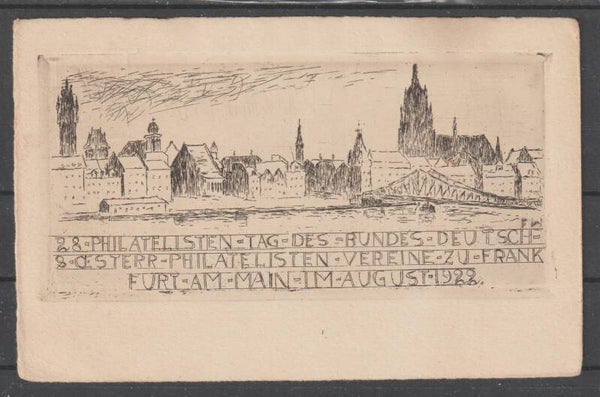 28·PHILATELISTEN·TAG·DES·BUNDES·DEUTSCH·
&·ŒSTERR·PHILATELISTEN·VEREINE·ZU·FRANK
FURT·AM·MAIN·IM·AUGUST·1922.